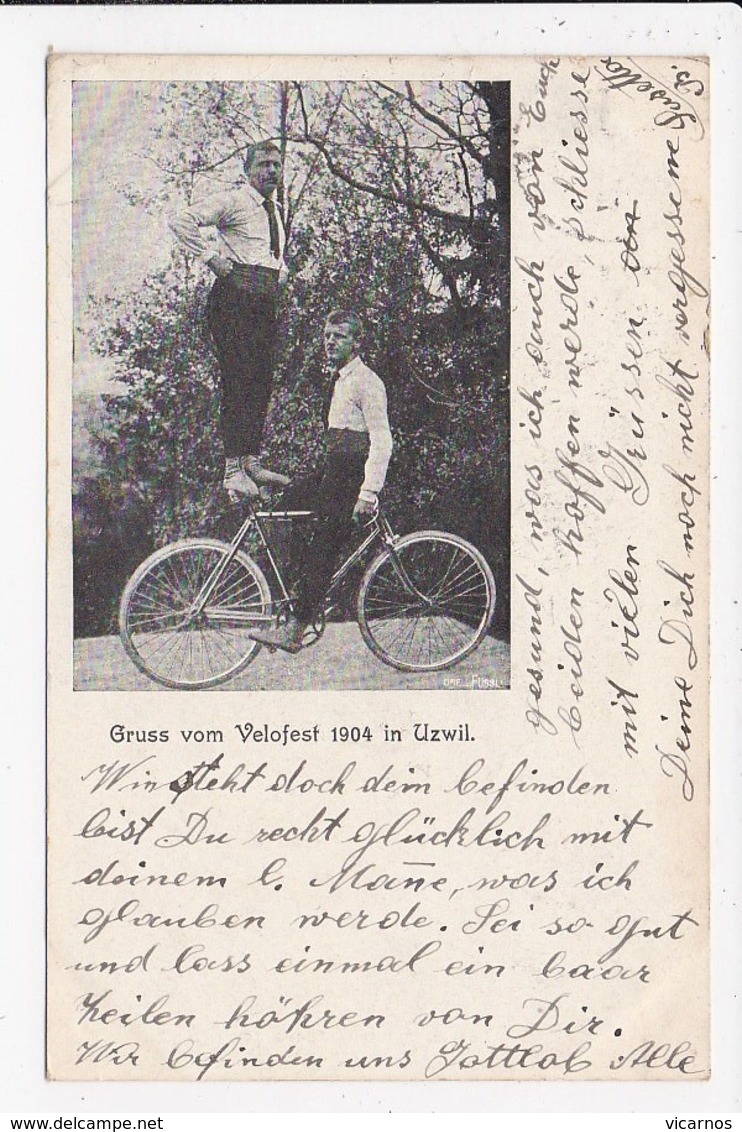 Gruss vom Velofest 1904 in Uzwil.
steht doch dein befinden
bist Du recht glücklich mit
deinem l. Mañe, was ich
glauben werde. Sei so gut
und lass einmal ein baar
Zeilen höhren von Dir.
Wir befinden uns Gottlob Alle
gesund, was ich auch von Euch
beiden hoffen werde, schliesse
mit vielen Grüssen an
Deine Dich noch nicht vergessene
vicarnos
www.delcampe.net